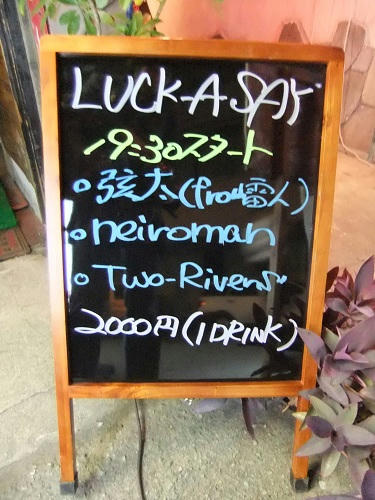 LUCK-A SAY
19:30スタート
○弦太(from雷人)
○neiroman
○Two-Rivers
2000円(1DRINK)